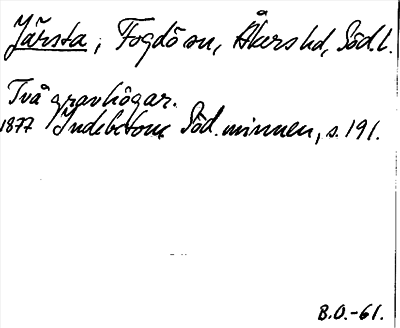 Järsta, Fogdö sn, Åkers hd, Södl.
Två gravhögar.
1877 Indebetou Söd. minnen, s. 191.
B.O.-61.